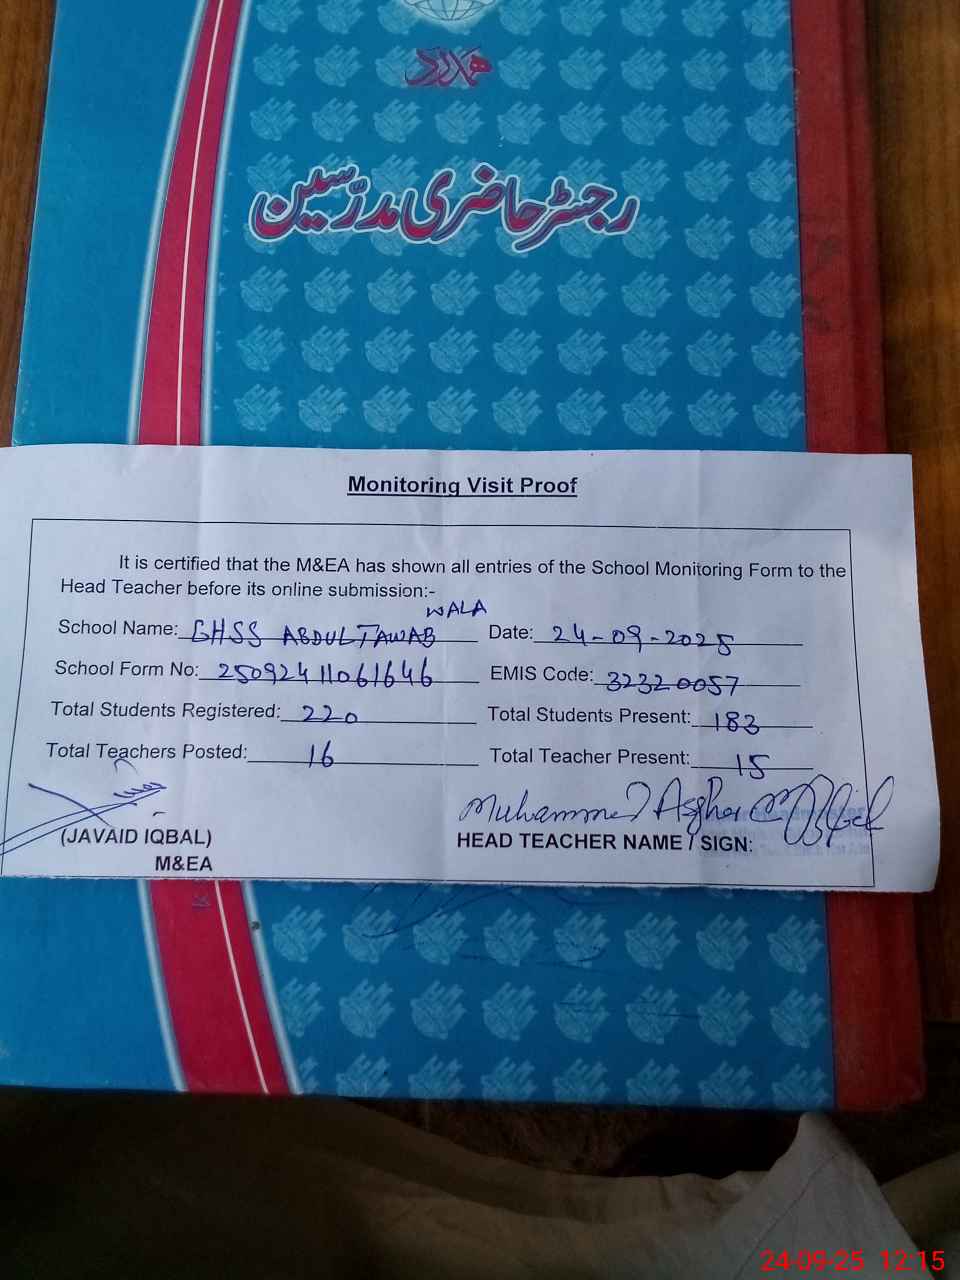 ہمدرد
رجسٹر حاضری مدرّسین
Monitoring Visit Proof
It is certified that the M&EA has shown all entries of the School Monitoring Form to the
Head Teacher before its online submission:-
School Name: GHSS ABDUL TAWAB WALA Date: 24-09-2025
School Form No: 25092411061646 EMIS Code: 32320057
Total Students Registered: 220 Total Students Present: 183
Total Teachers Posted: 16 Total Teacher Present: 15
Muhammad Asghar
(JAVAID IQBAL) HEAD TEACHER NAME / SIGN:
M&EA
24-09-25 12:15